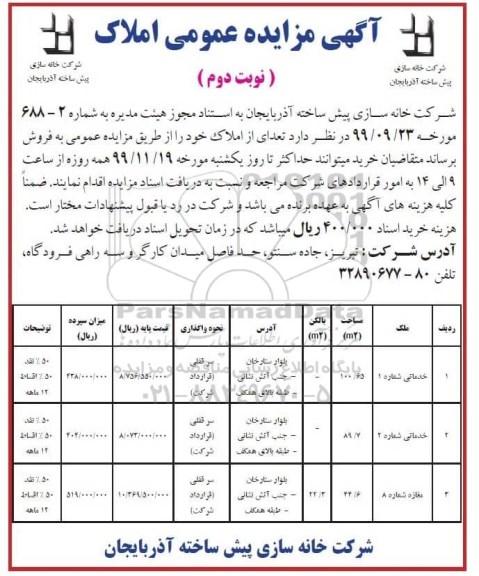 آگهی مزایده عمومی املاک
( نوبت دوم )
شرکت خانه سازی
پیش ساخته آذربایجان
شرکت خانه سازی
پیش ساخته آذربایجان
شرکت خانه سازی پیش ساخته آذربایجان به استناد مجوز هیئت مدیره به شماره ۲ - ۶۸۸
مورخه ۹۹/۰۹/۲۳ در نظر دارد تعدای از املاک خود را از طریق مزایده عمومی به فروش
برساند متقاضیان خرید میتوانند حداکثر تا روز یکشنبه مورخه ۹۹/۱۱/۱۹ همه روزه از ساعت
۹ الی ۱۴ به امور قراردادهای شرکت مراجعه و نسبت به دریافت اسناد مزایده اقدام نمایند. ضمناً
کلیه هزینه های آگهی به عهده برنده می باشد و شرکت در رد یا قبول پیشنهادات مختار است.
هزینه خرید اسناد ۴۰۰/۰۰۰ ریال میباشد که در زمان تحویل اسناد دریافت خواهد شد.
آدرس شرکت: تبریز، جاده سنتو، حد فاصل میدان کارگر و سه راهی فرودگاه،
تلفن ۸۰ - ۳۲۸۹۰۶۷۷
ParsNamadData
پایگاه اطلاع رسانی مناقصه و مزایده
۰۲۱-۸۸۳۴۹۶۷۰-۵
ردیف ملک مساحت (m۲) بالکن (m۲) آدرس نحوه واگذاری قیمت پایه (ریال) میزان سپرده (ریال) توضیحات
۱ خدماتی شماره ۱ ۱۰۰/۶۵ - بلوار ستارخان – جنب آتش نشانی – طبقه بالای همکف سر قفلی (قرارداد شرکت) ۸/۷۵۶/۵۵۰/۰۰۰ ۴۳۸/۰۰۰/۰۰۰ ۵۰٪ نقد ۵۰٪ اقساط ۱۲ ماهه
۲ خدماتی شماره ۲ ۸۹/۷ - بلوار ستارخان – جنب آتش نشانی – طبقه بالای همکف سر قفلی (قرارداد شرکت) ۸/۰۷۳/۰۰۰/۰۰۰ ۴۰۴/۰۰۰/۰۰۰ ۵۰٪ نقد ۵۰٪ اقساط ۱۲ ماهه
۳ مغازه شماره ۸ ۴۴/۶ ۲۲/۳ بلوار ستارخان – جنب آتش نشانی – طبقه همکف سر قفلی (قرارداد شرکت) ۱۰/۳۶۹/۵۰۰/۰۰۰ ۵۱۹/۰۰۰/۰۰۰ ۵۰٪ نقد ۵۰٪ اقساط ۱۲ ماهه
شرکت خانه سازی پیش ساخته آذربایجان